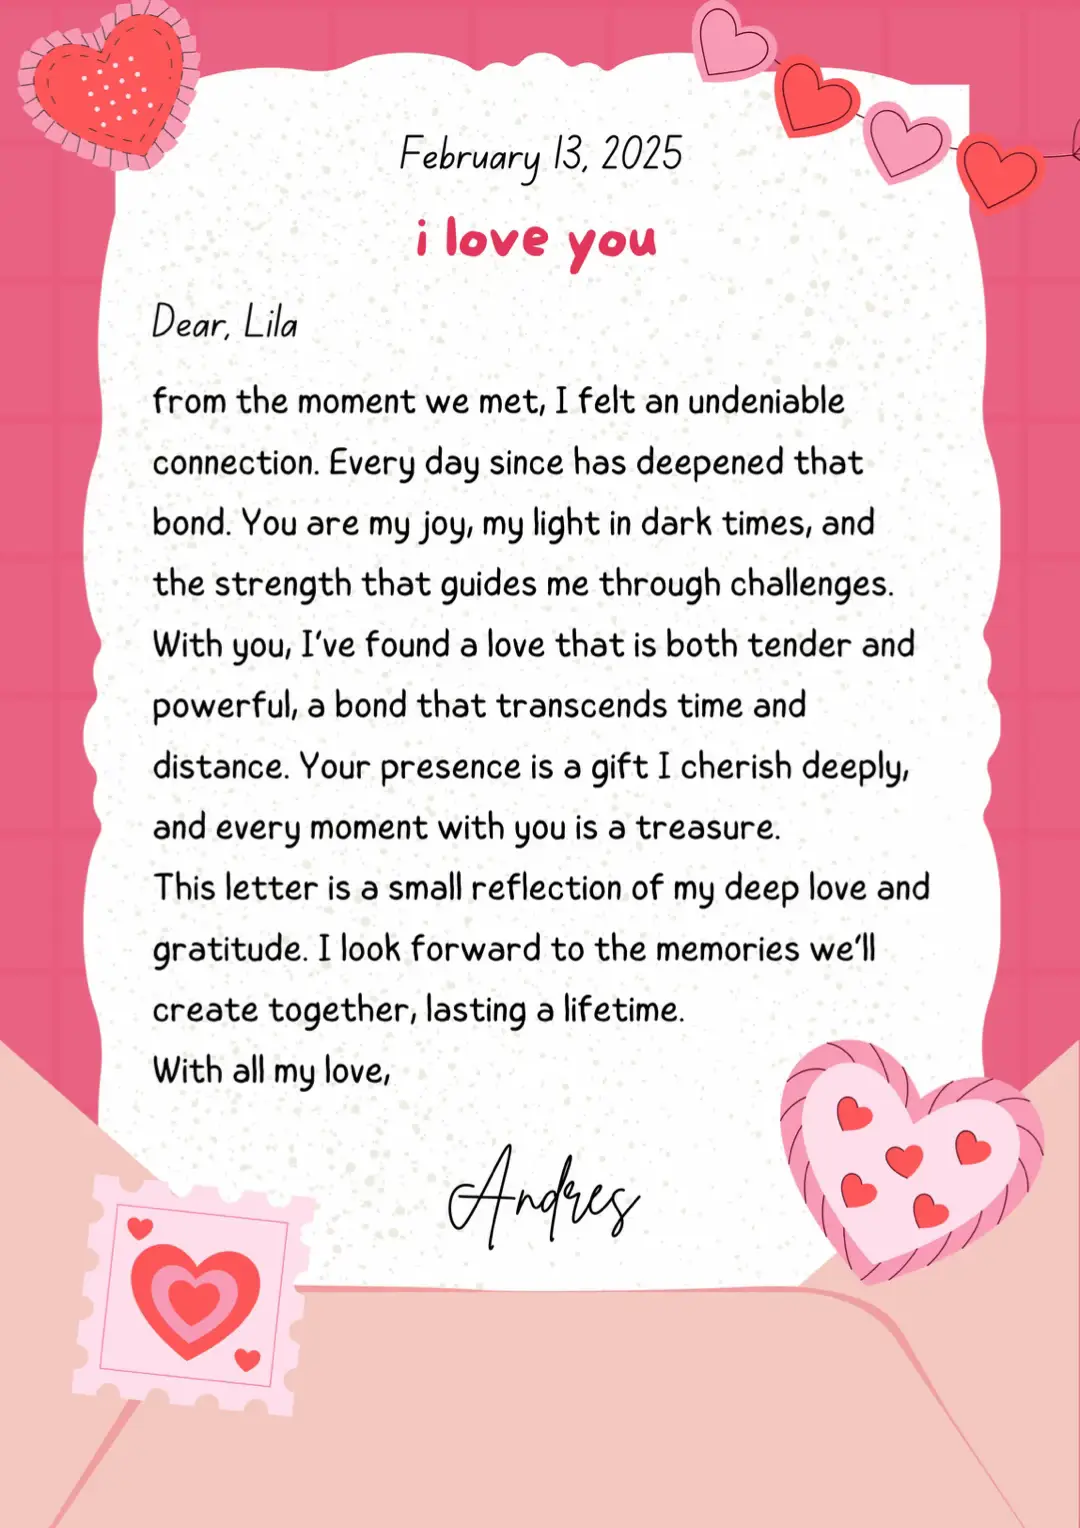 February 13, 2025
i love you
Dear, Lila
from the moment we met, I felt an undeniable
connection. Every day since has deepened that
bond. You are my joy, my light in dark times, and
the strength that guides me through challenges.
With you, I've found a love that is both tender and
powerful, a bond that transcends time and
distance. Your presence is a gift I cherish deeply,
and every moment with you is a treasure.
This letter is a small reflection of my deep love and
gratitude. I look forward to the memories we'll
create together, lasting a lifetime.
With all my love,
Andres